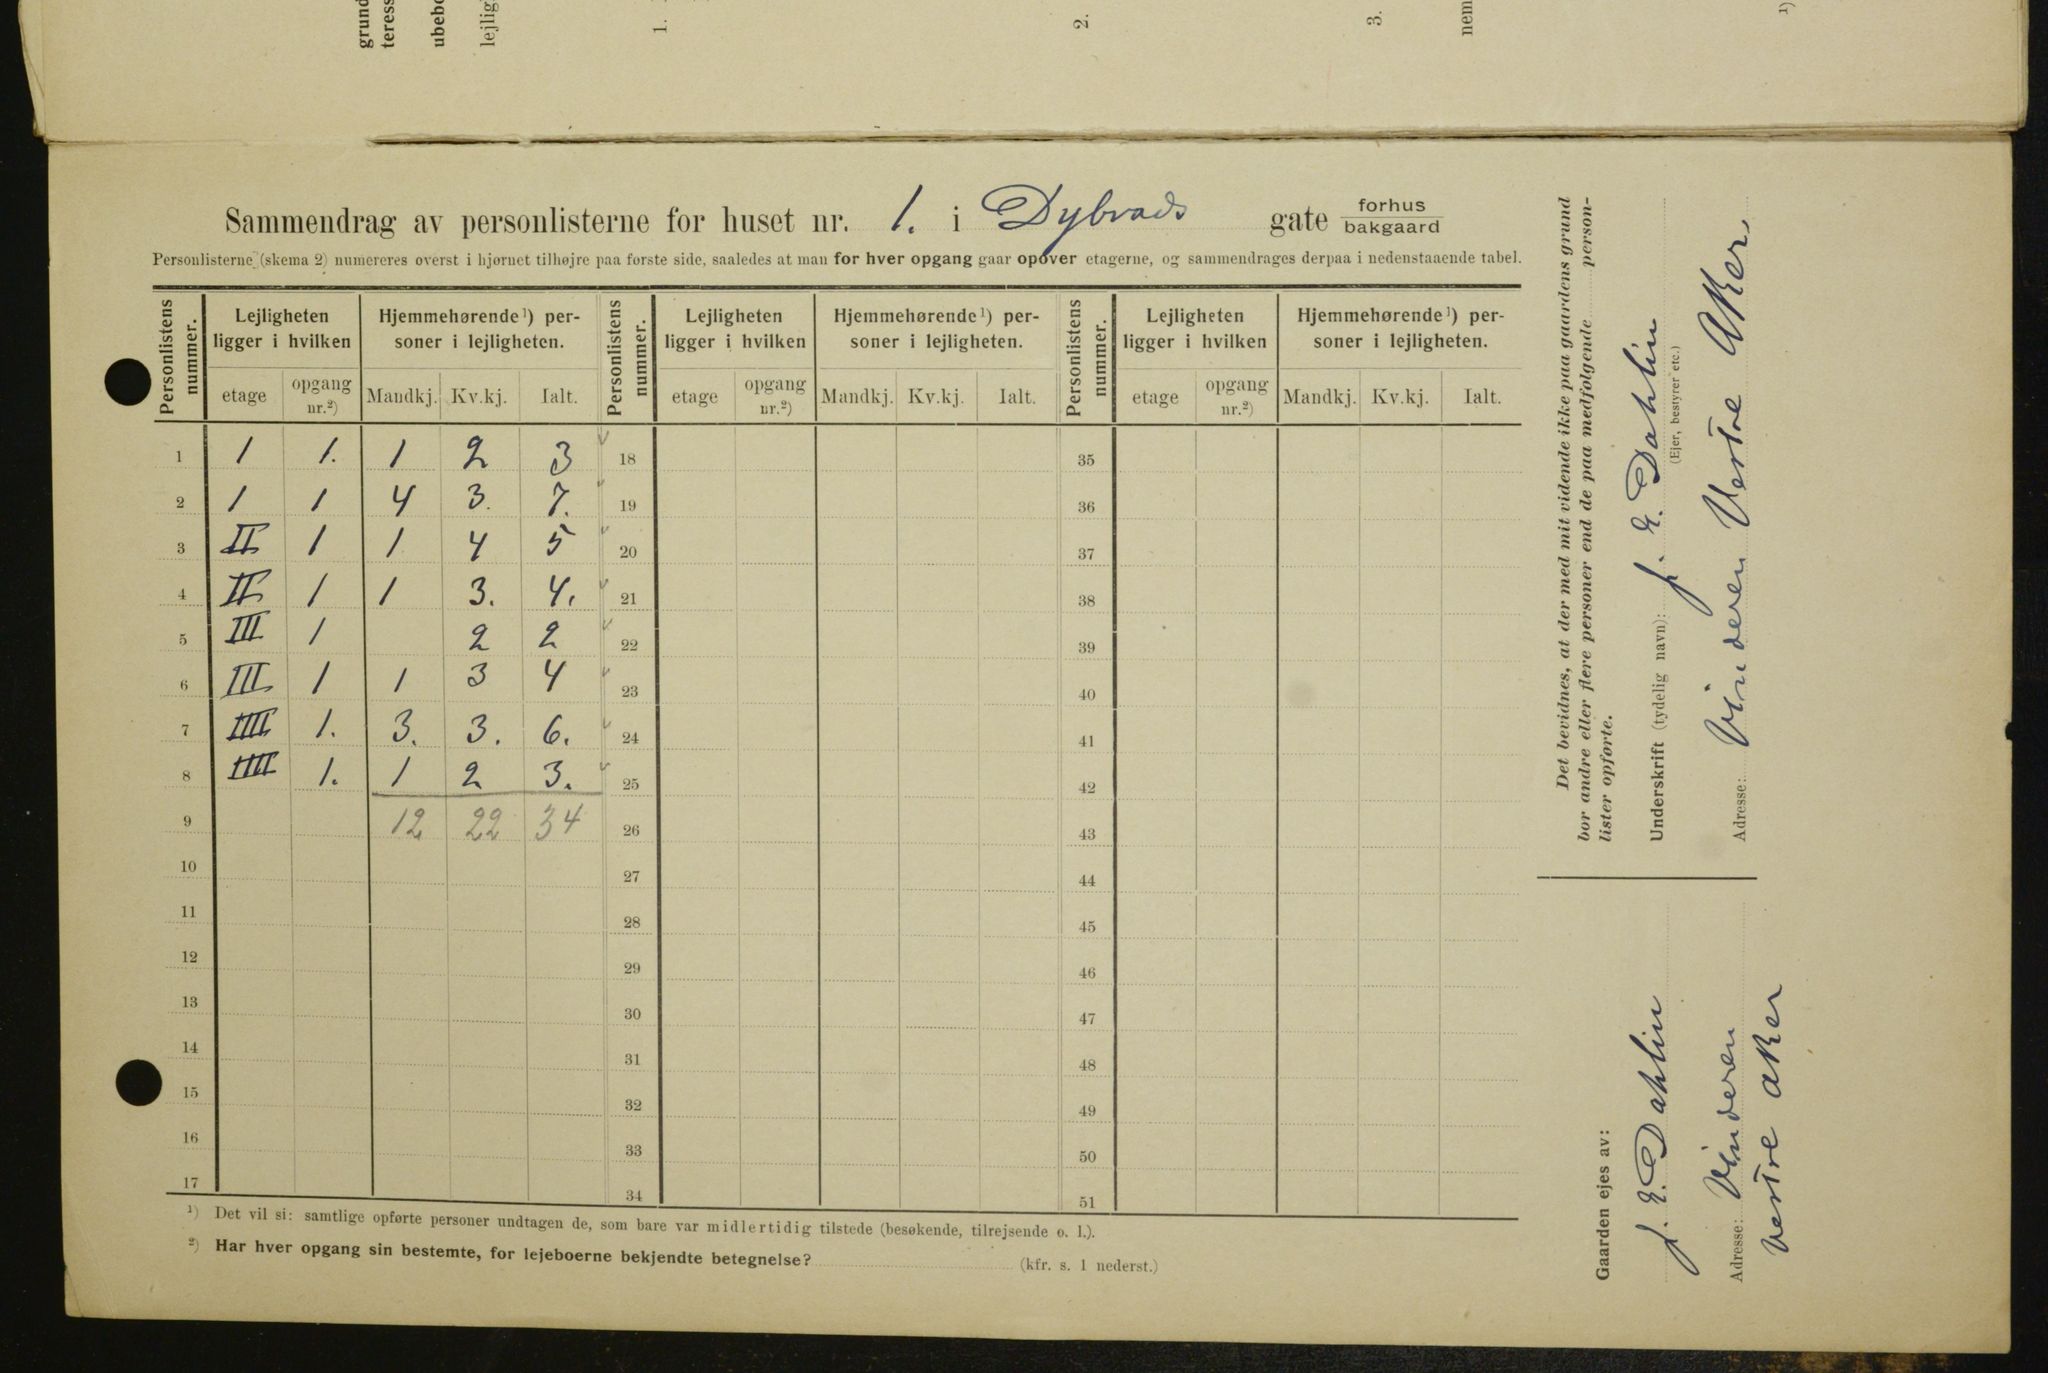 grund
teress
ubebo
lejlig
1.
2.
3.
nem
1)
Sammendrag av personlisterne for huset nr. 1. i Dybvads gate forhus
bakgaard
Personlisterne (skema 2) numereres øverst i hjørnet tilhøjre paa første side, saaledes at man for hver opgang gaar opover etagerne, og sammendrages derpaa i nedenstaaende tabel.
Personlistens nummer. Lejligheten ligger i hvilken Hjemmehørende¹) personer i lejligheten. Personlistens nummer. Lejligheten ligger i hvilken Hjemmehørende¹) personer i lejligheten. Personlistens nummer. Lejligheten ligger i hvilken Hjemmehørende¹) personer i lejligheten.
etage opgang nr.²) Mandkj. Kv.kj. Ialt. etage opgang nr.²) Mandkj. Kv.kj. Ialt. etage opgang nr.²) Mandkj. Kv.kj. Ialt.
1 1 1. 1 2 3 18 35
2 1 1 4 3. 7. 19 36
3 II 1 1 4 5 20 37
4 II 1 1 3. 4. 21 38
5 III 1 2 2 22 39
6 III 1 1 3 4 23 40
7 IIII 1. 3. 3. 6. 24 41
8 IIII 1. 1 2 3. 25 42
9 12 22 34 26 43
10 27 44
11 28 45
12 29 46
13 30 47
14 31 48
15 32 49
16 33 50
17 34 51
¹) Det vil si: samtlige opførte personer undtagen de, som bare var midlertidig tilstede (besøkende, tilrejsende o. l.).
²) Har hver opgang sin bestemte, for lejeboerne bekjendte betegnelse? (kfr. s. 1 nederst.)
Det bevidnes, at der med mit vidende ikke paa gaardens grund
bor andre eller flere personer end de paa medfølgende person-
lister opførte.
Underskrift (tydelig navn): J. E. Dahlin
(Ejer, bestyrer etc.)
Adresse: Vinderen Vestre Aker,
Gaarden ejes av:
J. E. Dahlin
Adresse: Vinderen
Vestre Aker